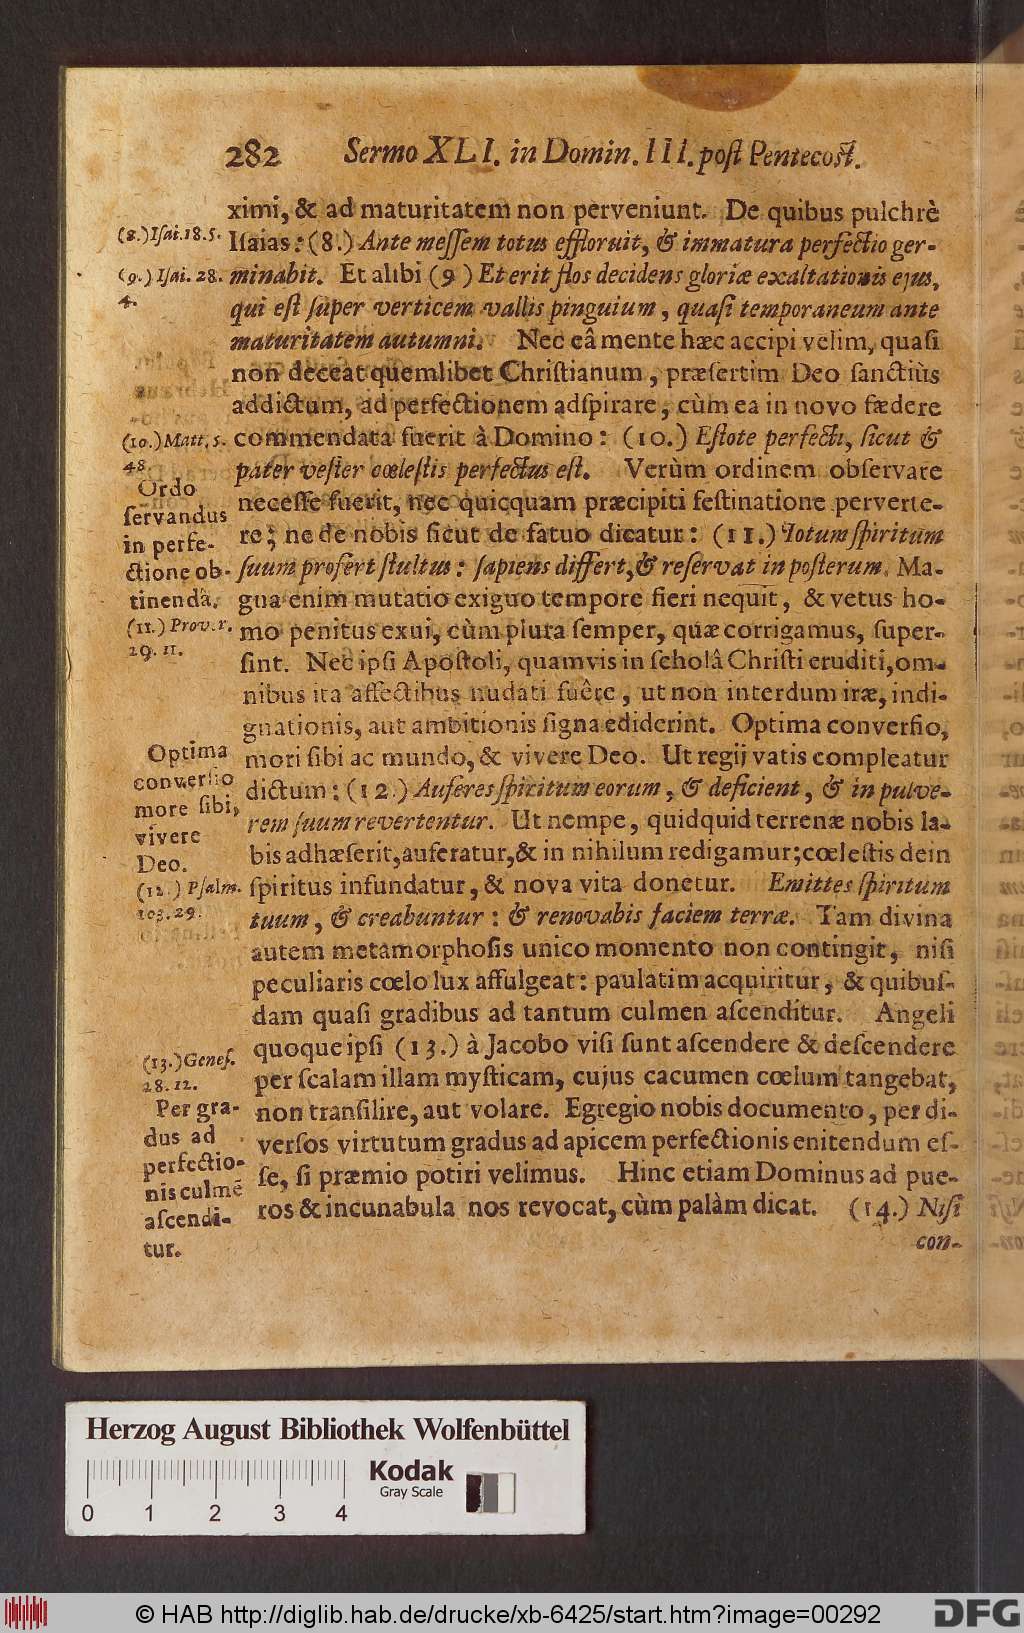 282 Sermo XLI. in Domin. III. poſt Pentecoſt.
ximi, & ad maturitatem non perveniunt. De quibus pulchrè
Iſaias: (8.) Ante meſſem totus effloruit, & immatura perfectio ger-
minabit. Et alibi (9) Et erit flos decidens gloriæ exaltationis ejus,
qui eſt ſuper verticem vallis pinguium, quaſi temporaneum ante
maturitatem autumni. Nec eâ mente hæc accipi velim, quaſi
non deceat quemlibet Chriſtianum, præſertim Deo ſanctiùs
addictum, ad perfectionem adſpirare, cùm ea in novo fædere
commendata fuerit à Domino: (10.) Eſtote perfecti, ſicut &
pater veſter cœleſtis perfectus eſt. Verùm ordinem obſervare
neceſſe fuerit, nec quicquam præcipiti feſtinatione perverte-
re; ne de nobis ſicut de fatuo dicatur: (11.) Totum ſpiritum
ſuum profert ſtultus: ſapiens differt, & reſervat in poſterum. Ma-
gna enim mutatio exiguo tempore fieri nequit, & vetus ho-
mo penitus exui, cùm plura ſemper, quæ corrigamus, ſuper-
ſint. Nec ipſi Apoſtoli, quamvis in ſcholâ Chriſti eruditi, om-
nibus ita affectibus nudati fuêre, ut non interdum iræ, indi-
gnationis, aut ambitionis ſigna ediderint. Optima converſio,
mori ſibi ac mundo, & vivere Deo. Ut regij vatis compleatur
dictum: (12.) Auferes ſpiritum eorum, & deficient, & in pulve-
rem ſuum revertentur. Ut nempe, quidquid terrenæ nobis la-
bis adhæſerit, auferatur, & in nihilum redigamur; cœleſtis dein
ſpiritus infundatur, & nova vita donetur. Emittes ſpiritum
tuum, & creabuntur: & renovabis faciem terræ. Tam divina
autem metamorphoſis unico momento non contingit, niſi
peculiaris cœlo lux affulgeat: paulatim acquiritur, & quibuſ-
dam quaſi gradibus ad tantum culmen aſcenditur. Angeli
quoque ipſi (13.) à Jacobo viſi ſunt aſcendere & deſcendere
per ſcalam illam myſticam, cujus cacumen cœlum tangebat,
non tranſilire, aut volare. Egregio nobis documento, per di-
verſos virtutum gradus ad apicem perfectionis enitendum eſ-
ſe, ſi præmio potiri velimus. Hinc etiam Dominus ad pue-
ros & incunabula nos revocat, cùm palàm dicat. (14.) Niſi
con-
(8.) Iſai. 18. 5.
(9.) Iſai. 28.
4.
(10.) Matt. 5.
48.
Ordo
ſervandus
in perfe-
ctione ob-
tinendâ.
(11.) Prov. r.
29. 11.
Optima
converſio
more ſibi,
vivere
Deo.
(12.) Pſalm.
103. 29.
(13.) Geneſ.
28. 12.
Per gra-
dus ad
perfectio-
nis culmē
aſcendi-
tur.
Herzog August Bibliothek Wolfenbüttel
Kodak
Gray Scale
0 1 2 3 4
© HAB http://diglib.hab.de/drucke/xb-6425/start.htm?image=00292
DFG